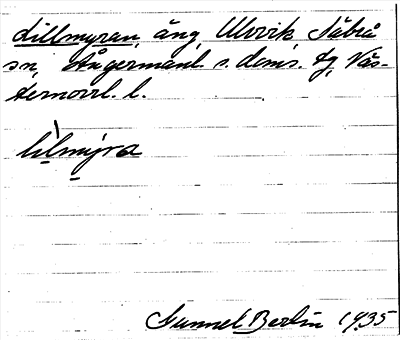 Lillmyran, äng, Ulvvik Näbrå
sn, Ångermanl. s. doms. tg, Väs-
ternorrl. l.
lìlmyra
Gunnel Berlin 1935